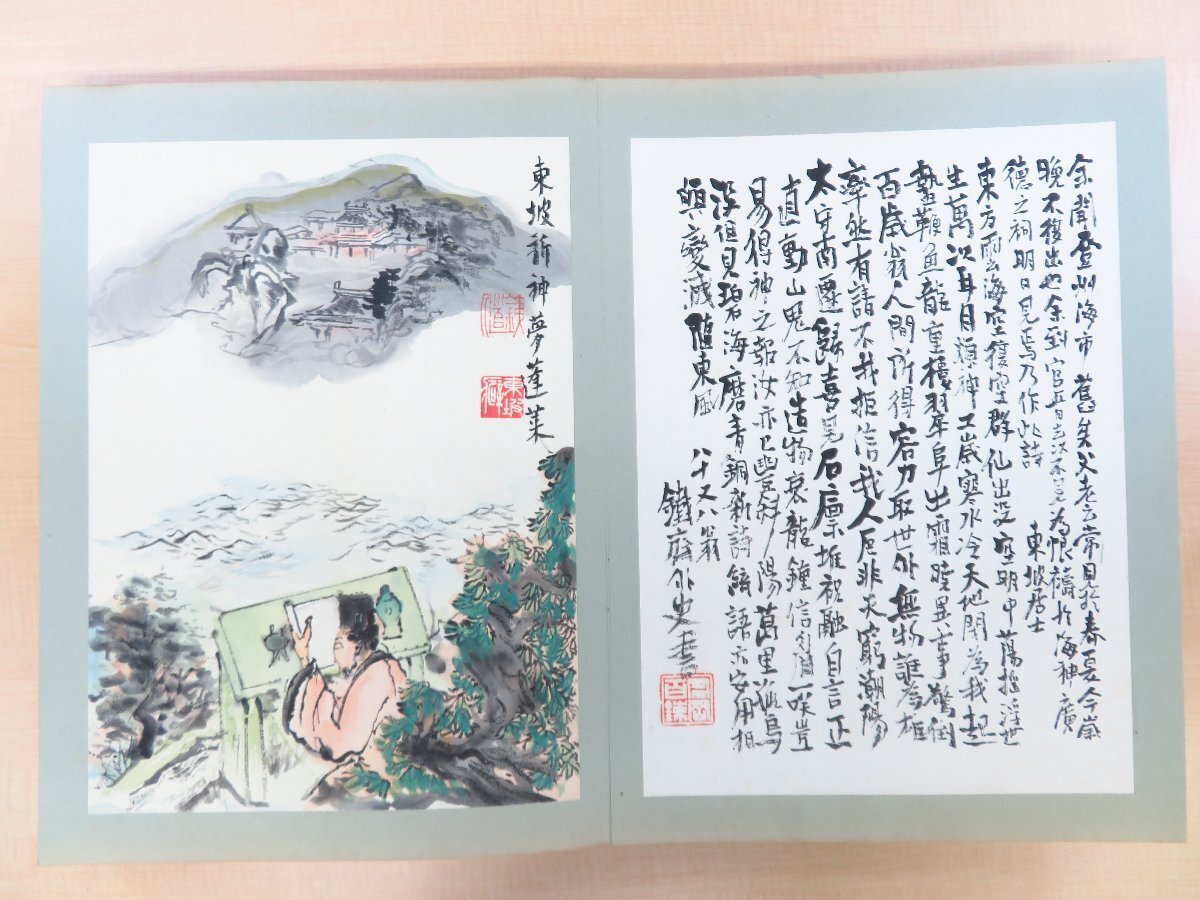 余聞登州海市舊矣父老云常見於春夏今歲
晚不復出也余到官五日去以不見為恨禱於海神廣
德之祠明日見焉乃作此詩 東坡居士
東方雲海空復空群仙出没空明中蕩搖浮世
生萬以耳目煩神工歲寒水冷天地閉為我起
蟄鞭魚龍重樓翠阜出霜曉異事驚倒
百歲翁人間所得容力取世外無物誰為雄
率然有請不我拒信我人厄非天窮潮陽
太守南遷歸喜見石廩堆祝融自言正
直動山鬼不知造物哀龍鍾信眉一咲豈
易得神之報汝亦已豐斜陽萬里孤鳥
没但見碧海磨青銅新詩綺語亦安用相
與變滅隨東風 八十又八翁
鐵齋外史
百鍊
東坡訴神夢蓬莱
東坡癖